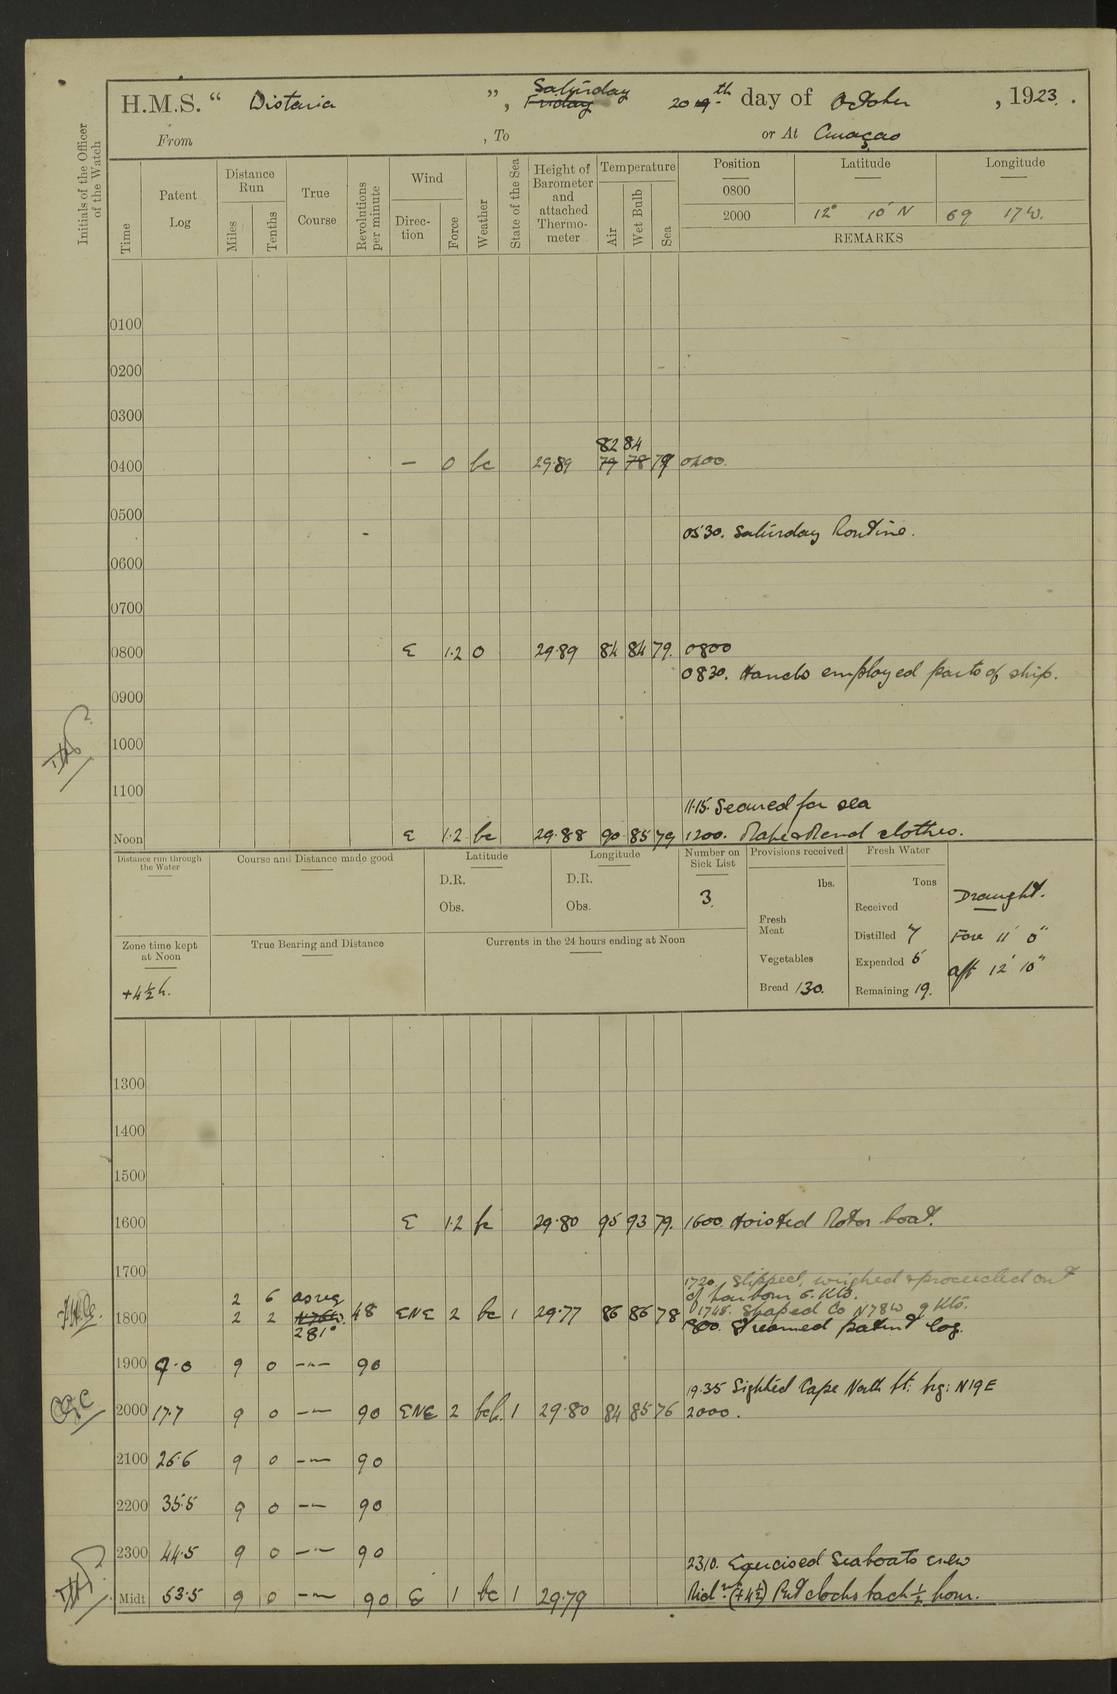 H.M.S. " Wistaria ", Saturday Friday 20 19th day of October, 1923.
From , To or At Curaçao
Initials of the Officer of the Watch
Time Patent Log Distance Run Miles Tenths True Course Revolutions per minute Wind Direction Force Weather State of the Sea Height of Barometer and attached Thermometer Temperature Air Wet Bulb Sea Position Latitude Longitude
0800
2000 12° 10' N 69 17 W.
REMARKS
0100
0200
0300
82 84
0400 — 0 bc 29.89 79 78 79 0400
0500
0530. Saturday Routine.
0600
0700
0800 E 1.2 0 29.89 84 84 79. 0800
0830. Hands employed parts of ship.
0900
1000
1100
11.15. Secured for sea
Noon E 1.2 bc 29.88 90 85 79 1200. Make & Mend clothes.
Distance run through the Water Course and Distance made good Latitude Longitude Number on Sick List Provisions received Fresh Water
D.R. D.R. lbs. Tons
Obs. Obs. 3 Received Draught.
Fresh Meat Distilled 7 Fore 11' 0"
Zone time kept at Noon True Bearing and Distance Currents in the 24 hours ending at Noon
Vegetables Expended 5 Aft 12' 10"
+4½h. Bread 130. Remaining 19.
1300
1400
1500
1600 E 1.2 bc 29.80 95 93 79. 1600. Hoisted Motor boat.
1700
1720. Slipped, weighed & proceeded out
2 6 as req of harbour 6. Kts.
1748. Shaped Co N78W 9 Kts.
1800 2 2 N78W. 281° 48 ENE 2 bc 1 29.77 86 86 78 1800. Streamed patent log.
1900 9.0 9 0 —"— 90
19.35 Sighted Cape North Pt: brg: N19E
2000 17.7 9 0 —"— 90 ENE 2 bc 1 29.80 84 85 76 2000.
2100 26.6 9 0 —"— 90
2200 35.5 9 0 —"— 90
2300 44.5 9 0 —"— 90
2310. Exercised Seaboats crew
Midt 53.5 9 0 —"— 90 E 1 bc 1 29.79 Midt. (+4½) Put clocks back ½ hour.